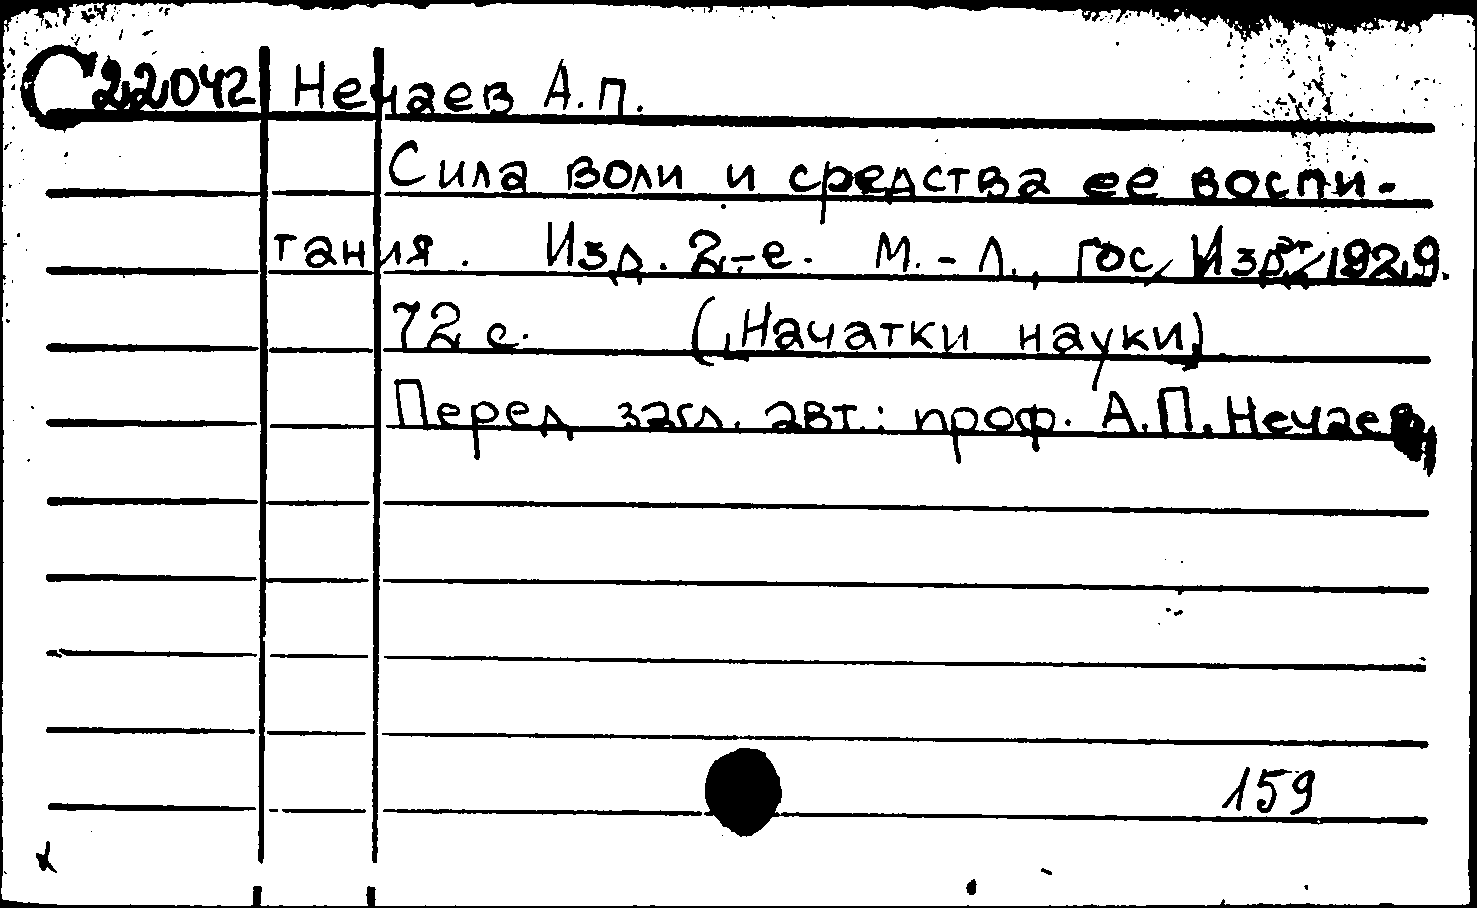 С22042 Нечаев А.П.
Сила воли и средства ее воспи-
тания. Изд. 2-е. М.-Л., Гос. Изд-, 1929.
72 с. („Начатки науки")
Перед загл. авт.: проф. А.П. Нечаев
159
х